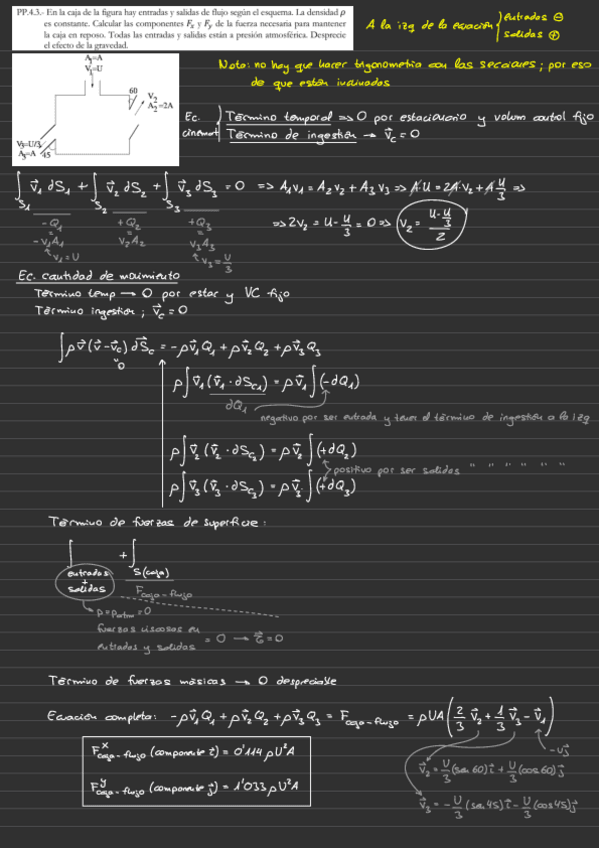 PP.4.3.- En la caja de la figura hay entradas y salidas de flujo según el esquema. La densidad ρ
es constante. Calcular las componentes Fx y Fy de la fuerza necesaria para mantener
la caja en reposo. Todas las entradas y salidas están a presión atmosférica. Desprecie
el efecto de la gravedad.
A la izq de la ecuación { entradas ⊖
salidas ⊕
Nota: no hay que hacer trigonometría con las secciones; por eso
de que estén inclinadas
A₁=A
V₁=U
60
V₂
A₂=2A
V₃=U/3
A₃=A
45
Ec.
cinemát
Término temporal ⇒ 0 por estacionario y volum control fijo
Término de ingestión → v⃗c = 0
∫S₁ v⃗₁ dS₁ + ∫S₂ v⃗₂ dS₂ + ∫S₃ v⃗₃ dS₃ = 0 ⇒ A₁V₁ = A₂V₂ + A₃V₃ ⇒ A·U = 2A·V₂ + A·U/3 ⇒
-Q₁ +Q₂ +Q₃
= = =
-V₁A₁ V₂A₂ V₃A₃
V₁=U V₃=U/3
⇒ 2V₂ = U - U/3 = 0 ⇒ V₂ = (U - U/3)/2
Ec. cantidad de movimiento
Término temp → 0 por estac y VC fijo
Término ingestión; v⃗c = 0
∫ρv⃗(v⃗-v⃗c)dS⃗c = -ρv⃗₁Q₁ + ρv⃗₂Q₂ + ρv⃗₃Q₃
0
ρ∫v⃗₁(v⃗₁·dSc₁) = ρv⃗₁∫(-dQ₁)
dQ₁
negativo por ser entrada y tener el término de ingestión a la izq
ρ∫v⃗₂(v⃗₂·dSc₂) = ρv⃗₂∫(+dQ₂)
positivo por ser salidas " " " " " "
ρ∫v⃗₃(v⃗₃·dSc₃) = ρv⃗₃∫(+dQ₃)
Término de fuerzas de superficie:
∫ + ∫
entradas + salidas S(caja)
Fcaja-flujo
p = patm = 0
fuerzas viscosas en
entradas y salidas = 0 → τ⃗ = 0
Término de fuerzas másicas → 0 despreciable
Ecuación completa: -ρv⃗₁Q₁ + ρv⃗₂Q₂ + ρv⃗₃Q₃ = Fcaja-flujo = ρUA(2/3 v⃗₂ + 1/3 v⃗₃ - v⃗₁)
-Uj⃗
Fˣcaja-flujo (componente i⃗) = 0'114 ρU²A
v⃗₂ = U/3(sen 60)i⃗ + U/3(cos 60)j⃗
Fʸcaja-flujo (componente j⃗) = 1'033 ρU²A
v⃗₃ = -U/3(sen 45)i⃗ - U/3(cos 45)j⃗